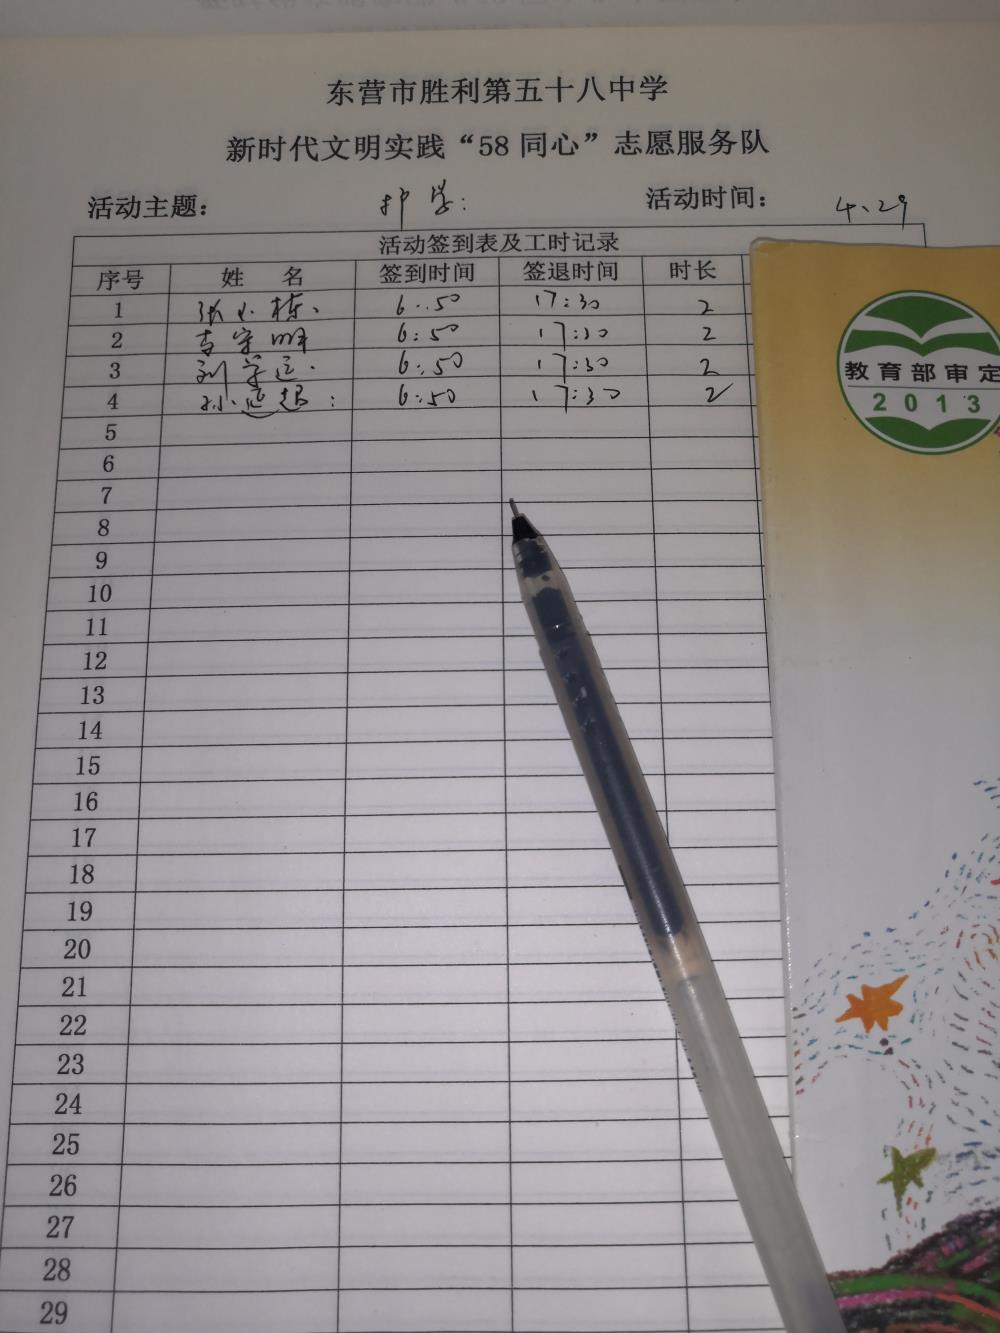 东营市胜利第五十八中学
新时代文明实践“58同心”志愿服务队
活动主题： 护学： 活动时间： 4、29
活动签到表及工时记录
序号 姓 名 签到时间 签退时间 时长
1 张小栋、 6:50 17:30 2
2 吉宗明 6:50 17:30 2
3 刘学 6:50 17:30 2
4 孙延超： 6:50 17:30 2
5
6
7
8
9
10
11
12
13
14
15
16
17
18
19
20
21
22
23
24
25
26
27
28
29
教育部审定
2013